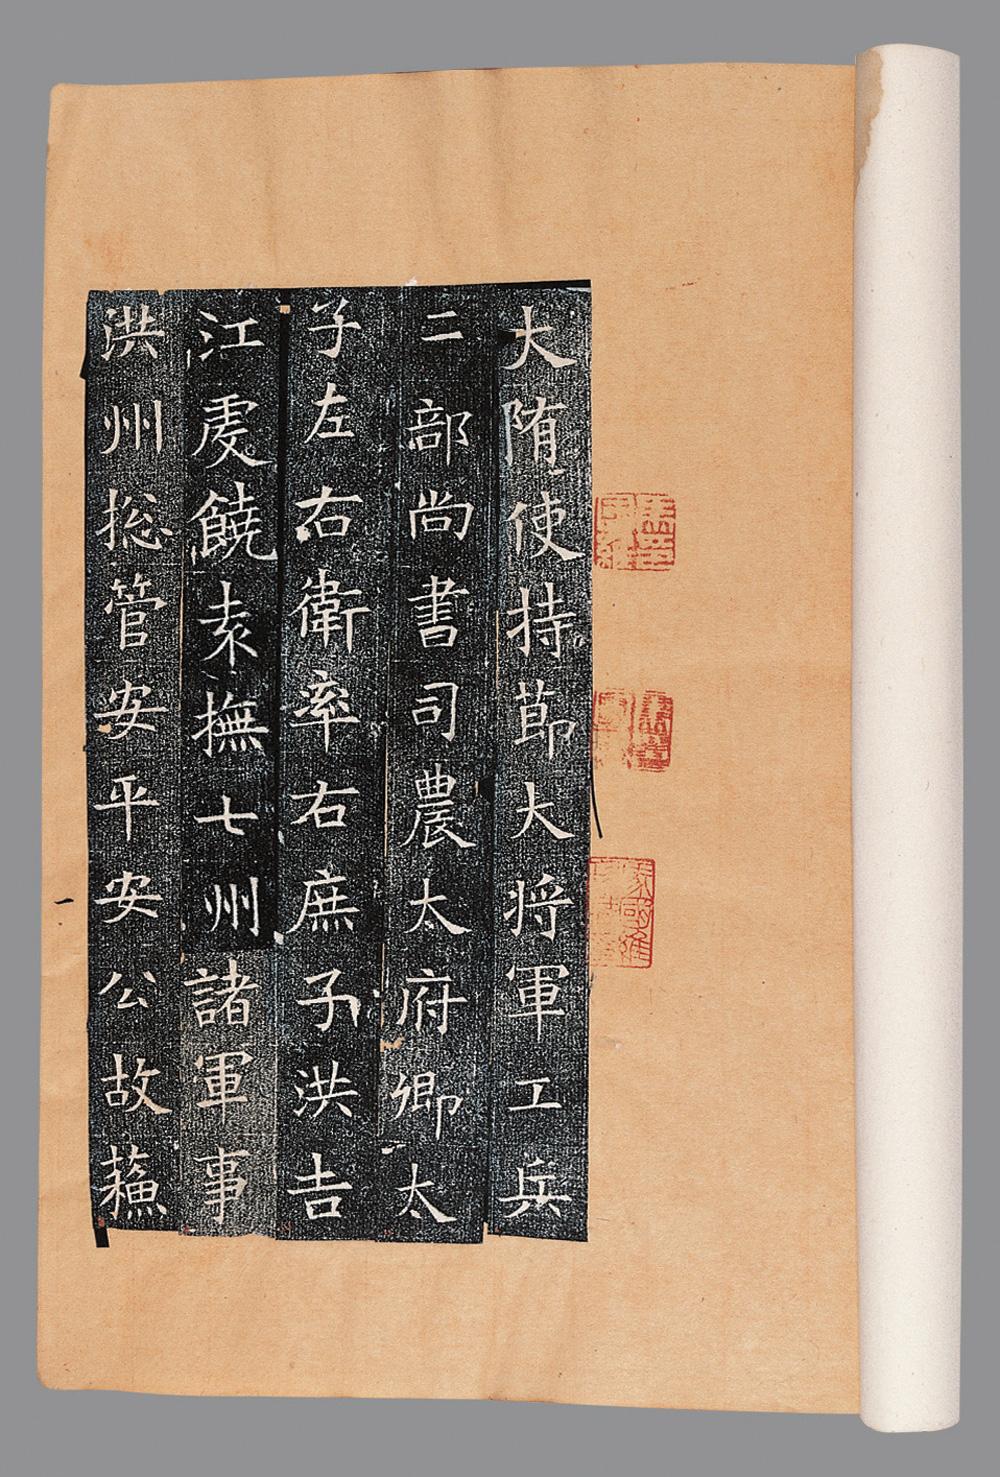 大隋使持節大将軍工兵
二部尚書司農太府卿太
子左右衛率右庶子洪吉
江虔饒袁撫七州諸軍事
洪州総管安平安公故蘓